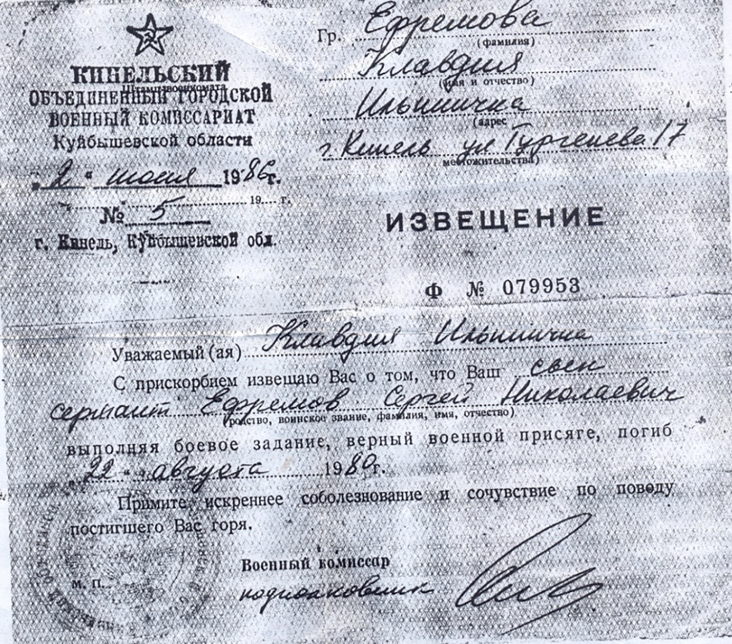 КИНЕЛЬСКИЙ
ОБЪЕДИНЕННЫЙ ГОРОДСКОЙ
ВОЕННЫЙ КОМИССАРИАТ
Куйбышевской области
"2" июля 1986г.
19 г.
№ 5
г. Кинель, Куйбышевской обл.
Гр. Ефремова
(фамилия)
Клавдия
(имя и отчество)
Ильинична
(адрес
г. Кинель ул Тургенева 17
местожительства)
ИЗВЕЩЕНИЕ
Ф № 079953
Уважаемый (ая) Клавдия Ильинична
С прискорбием извещаю Вас о том, что Ваш сын
сержант Ефремов Сергей Николаевич
(родство, воинское звание, фамилия, имя, отчество)
выполняя боевое задание, верный военной присяге, погиб
22 августа 1980г.
Примите искреннее соболезнование и сочувствие по поводу
постигшего Вас горя.
Военный комиссар
подполковник
М. П.